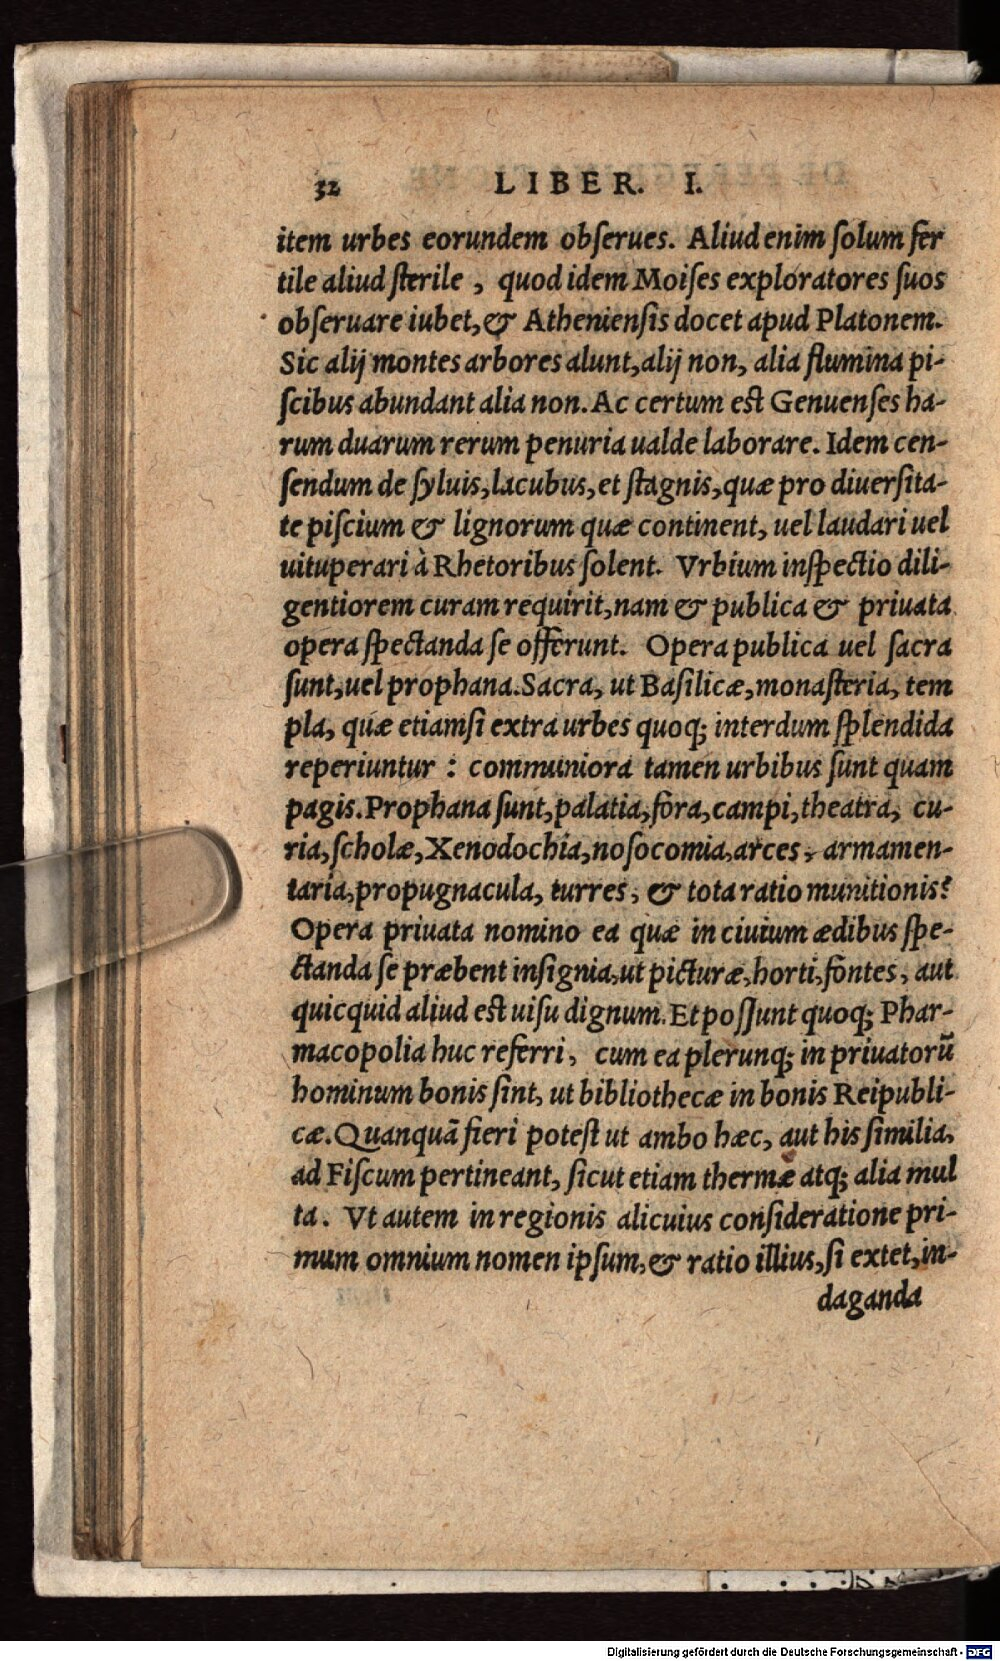 32 LIBER. I.
item urbes eorundem obſerues. Aliud enim ſolum fer
tile aliud ſterile , quod idem Moiſes exploratores ſuos
obſeruare iubet,& Athenienſis docet apud Platonem.
Sic alij montes arbores alunt,alij non, alia flumina pi-
ſcibus abundant alia non. Ac certum eſt Genuenſes ha-
rum duarum rerum penuria ualde laborare. Idem cen-
ſendum de ſyluis,lacubus,et ſtagnis,quæ pro diuerſita-
te piſcium & lignorum quæ continent, uel laudari uel
uituperari à Rhetoribus ſolent. Vrbium inſpectio dili-
gentiorem curam requirit,nam & publica & priuata
opera ſpectanda ſe offerunt. Opera publica uel ſacra
ſunt,uel prophana.Sacra, ut Baſilicæ,monaſteria, tem
pla, quæ etiamſi extra urbes quoq; interdum ſplendida
reperiuntur : communiora tamen urbibus ſunt quam
pagis.Prophana ſunt,palatia,fora,campi,theatra, cu-
ria,ſcholæ,Xenodochia,noſocomia,arces, armamen-
taria,propugnacula, turres, & tota ratio munitionis?
Opera priuata nomino ea quæ in ciuium ædibus ſpe-
ctanda ſe præbent inſignia,ut picturæ,horti,fontes, aut
quicquid aliud eſt uiſu dignum.Et poſſunt quoq; Phar-
macopolia huc referri, cum ea plerunq; in priuatorū
hominum bonis ſint, ut bibliothecæ in bonis Reipubli-
cæ.Quanquã fieri poteſt ut ambo hæc, aut his ſimilia,
ad Fiſcum pertineant, ſicut etiam thermæ atq; alia mul
ta. Vt autem in regionis alicuius conſideratione pri-
mum omnium nomen ipſum,& ratio illius,ſi extet,in-
daganda
Digitalisierung gefördert durch die Deutsche Forschungsgemeinschaft - DFG